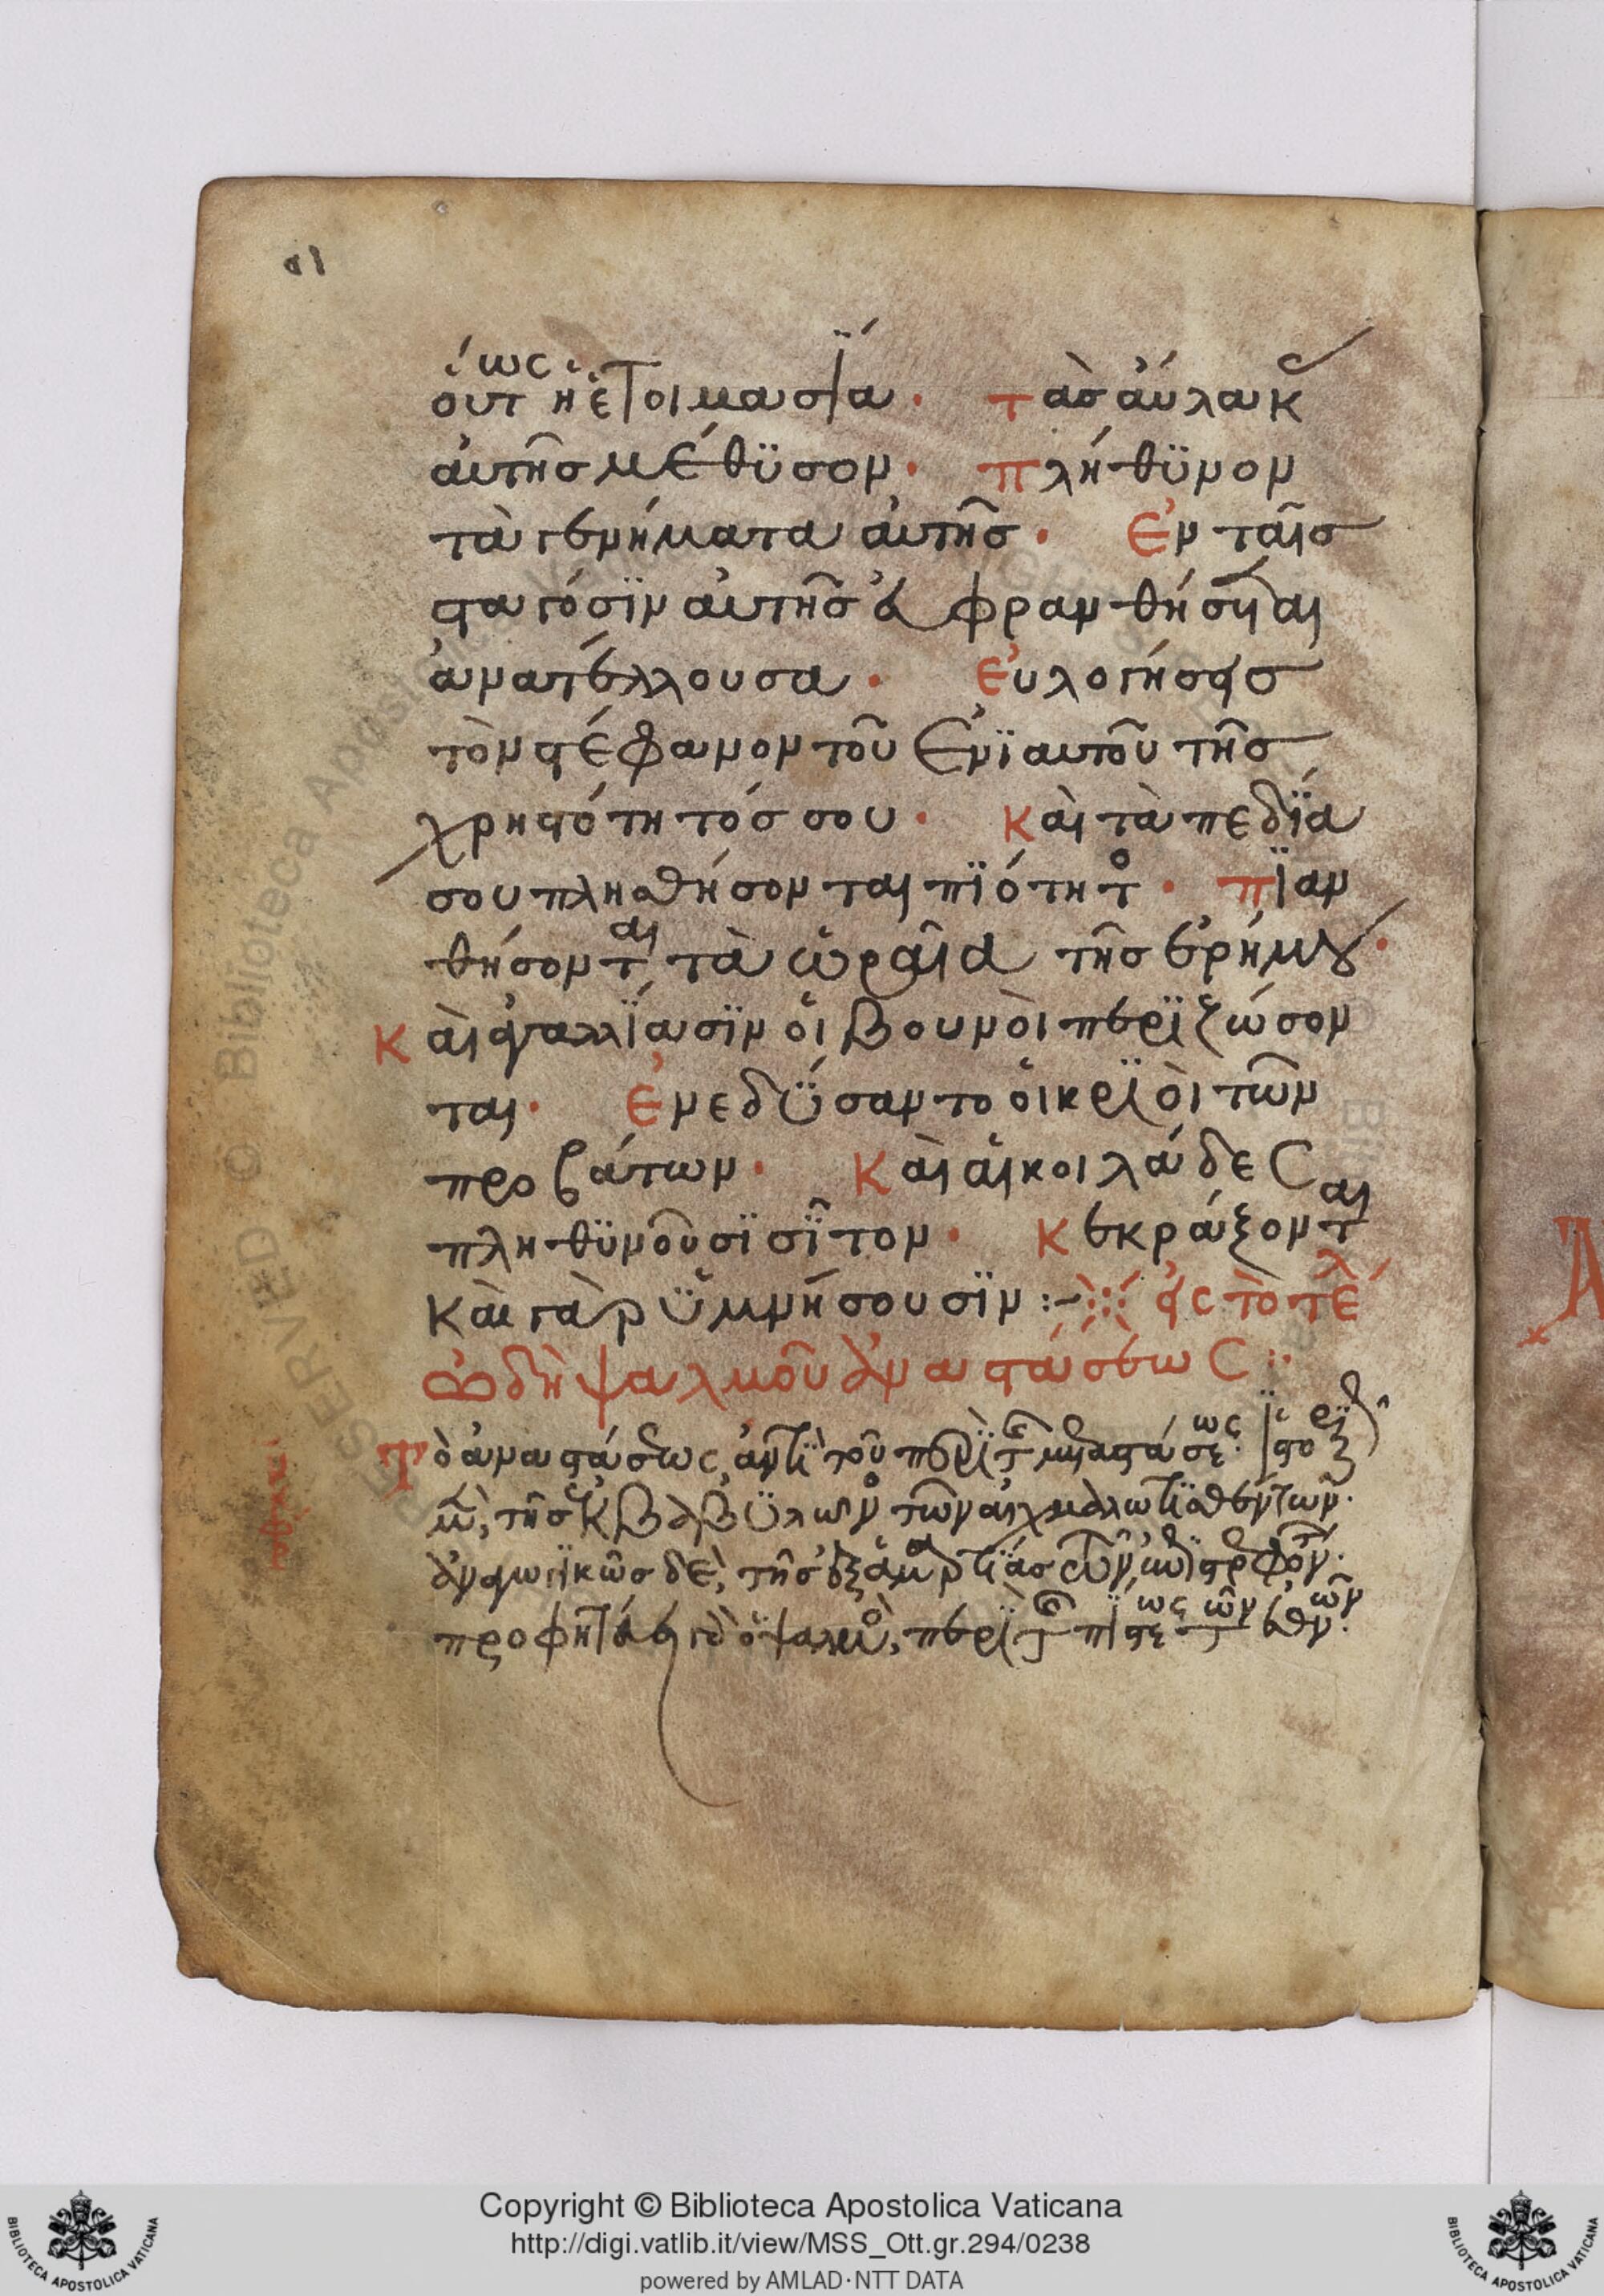 οὕτως ἡ ἑτοιμασΐα· τὰσ αὔλακ
αὐτῆσ μέθϋσον· πλήθϋνον
τὰ γενήματα αὐτῆσ· Ἐν ταῖσ
σταγόσϊν αὐτῆσ εὐφρανθήσεται
ἀνατέλλουσα· Εὐλογήσεισ
τὸν στέφανον τοῦ ἐνϊαυτοῦ τῆσ
χρηστότητόσ σου· Καὶ τὰ πεδΐα
σου πλησθήσονται πϊότητο· πϊαν
θήσονται τὰ ὡραῖα τῆσ ἐρήμου·
Καὶ ἀγαλλΐασϊν οἱ βουνοὶ περϊζώσον
ται· Ἐνεδΰσαντο οἱ κρϊοὶ τῶν
προβάτων· Καὶ αἱ κοιλάδες
πληθϋνοῦσϊ σῖτον· Κεκράξονται
καὶ γὰρ ὑμνήσουσϊν :~ εἰς τὸ τέλ
Ὠδὴ ψαλμοῦ ἀναστάσεως :·
Τὸ ἀναστάσεως, ἀντῒ τοῦ περῒ
τῆσ ἐκ Βαβϋλων τῶν αἰχμαλωτϊσθέντων·
προφητεύει ὁ ψαλμο, περῒ τ πΐστεως τῶν ἐθνῶν·
Copyright © Biblioteca Apostolica Vaticana
http://digi.vatlib.it/view/MSS_Ott.gr.294/0238
powered by AMLAD·NTT DATA
BIBLIOTECA APOSTOLICA VATICANA
BIBLIOTECA APOSTOLICA VATICANA